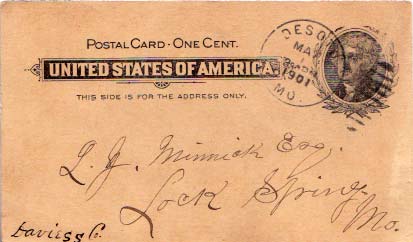 POSTAL CARD · ONE CENT.
UNITED STATES OF AMERICA.
THIS SIDE IS FOR THE ADDRESS ONLY.
DESO
MA
1901
MO.
L. J. Minnick Esq.
Lock Spring
Mo.
Daviess Co.